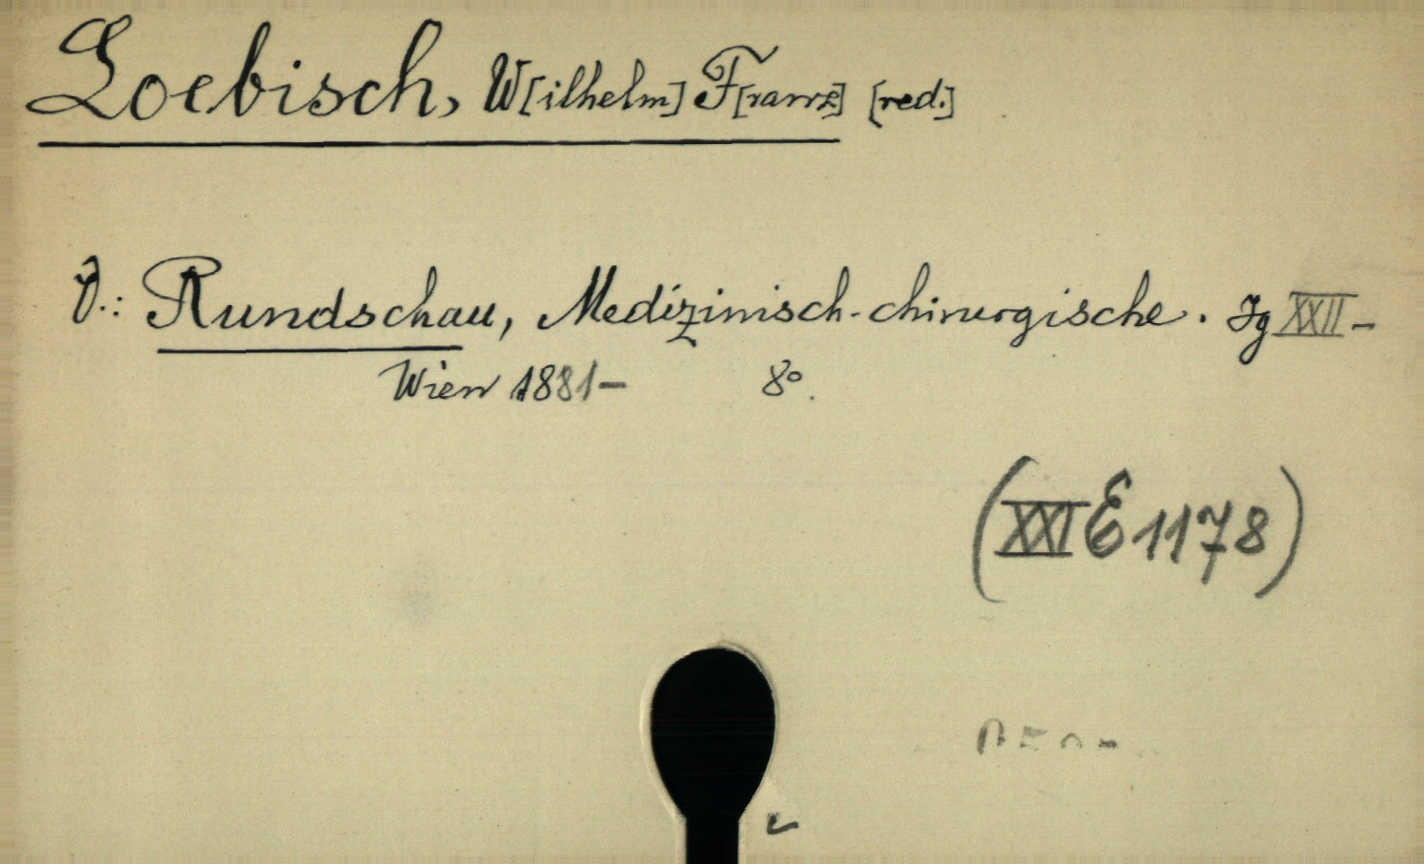 Loebisch, W[ilhelm] F[ranz] [red.]
V.: Rundschau, Medizinisch-chirurgische. Jg XXII-
Wien 1881- 8°.
(XXI E 1178)